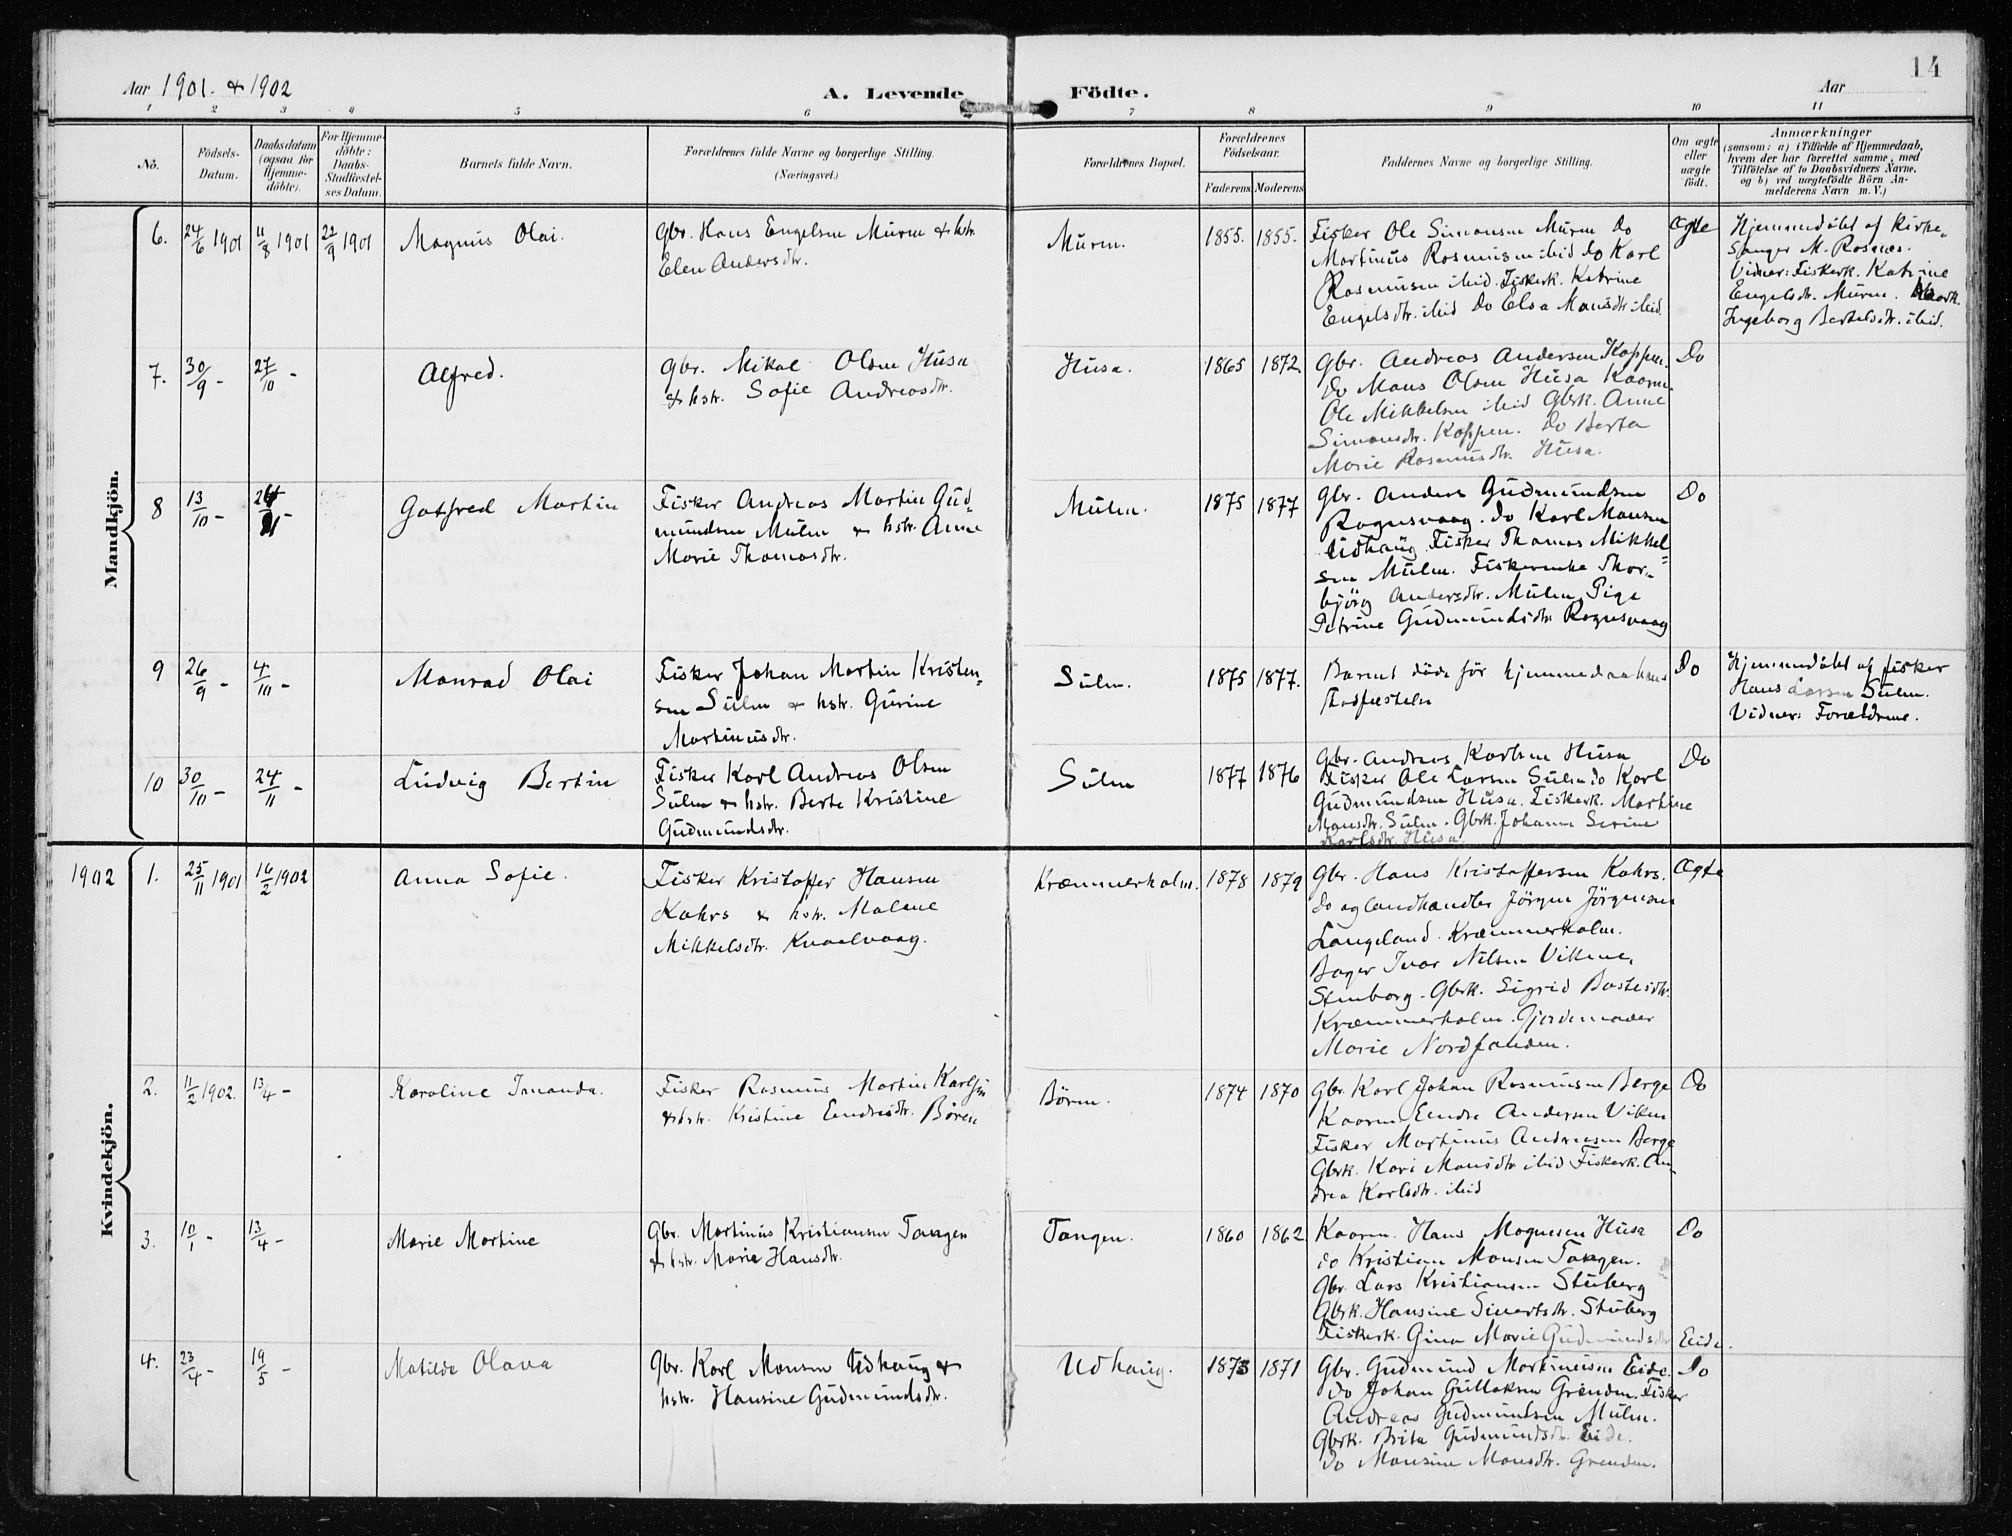 14
Aar 1901. & 1902
A. Levende
Födte.
Aar
1 2 3 4 5 6 7 8 9 10 11
No.
Födsels-
Datum.
Daabsdatum
(ogsaa for
Hjemme-
döbte).
For Hjemme-
döbte:
Daabs-
Stadfæstel-
ses Datum.
Barnets fulde Navn.
Forældrenes fulde Navne og borgerlige Stilling.
(Næringsvei.)
Forældrenes Bopæl.
Forældrenes
Födselsaar.
Faderens Moderens
Faddernes Navne og borgerlige Stilling.
Om ægte
eller
uægte
födt.
Anmærkninger
(saasom: a) i Tilfælde af Hjemmedaab,
hvem der har forrettet samme, med
Tilföielse af to Daabsvidners Navne,
og b) ved uægtefödte Börn An-
melderens Navn m. V.)
Mandkjön.
6. 24/6 1901 11/8 1901 22/9 1901
Magnus Olai.
Gbr. Hans Engelsen Murm & hstr.
Elen Andersdtr.
Murm.
1855. 1855.
Fisker Ole Simonsen Murm Do
Martinus Rasmusen ibid Do Karl
Rasmusen ibid. Fiskerk. Katrine
Engelsdtr. ibid Do Elsa Mansdtr ibid.
Ægte
Hjemmedöbt af Kirke-
sanger M. Rosnæs.
Vidner: Fiskerk. Katrine
Engelsdtr. Murm.
Ingeborg Bertelsdtr. ibid.
7. 30/9 - 27/10 -
Alfred.
Gbr. Mikal Olsen Husa
& hstr. Sofie Andreasdtr.
Husa.
1865 1872
Gbr. Andreas Andersen Koppen.
Do Mans Olsen Husa Kaarm.
Ole Mikkelsen ibid Gbrk. Anne
Simonsdtr. Koppen. Do Berta
Marie Rasmusdtr. Husa.
Do
8 13/10 -
Gotfred Martin
Fisker Andreas Martin Gud-
mundsen Mulm & hstr. Anne
Marie Thomasdtr.
Mulm.
1875 1877
Gbr. Anders Gudmundsen
Rognsvaag. Do Karl Mansen
Udhaug. Fisker Thomas Mikkel-
sen Mulm. Fiskerenke Thor-
björg Andersdtr. Mulm. Pige
Petrine Gudmundsdtr Rognsvaag
Do
9 26/9 - 4/10 -
Monrad Olai
Fisker Johan Martin Kristen-
sen Sulm & hstr. Gurine
Martinusdtr.
Sulm.
1875 1877.
Barnet döde för hjemmedaabens
Stadfæstelse
Do
Hjemmedöbt af fisker
Hans Larsen Sulm.
Vidner: Forældrene.
10 30/10 - 24/11 -
Ludvig Bertin
Fisker Karl Andreas Olsen
Sulm & hstr. Berte Kristine
Gudmundsdtr.
Sulm
1877 1876
Gbr. Andreas Karlsen Husa
Fisker Ole Larsen Sulm do Karl
Gudmundsen Husa. Fiskerk. Martine
Mansdtr. Sulm. Gbrk. Johanne Serine
Karlsdtr. Husa.
Do
1902
Kvindekjön.
1. 25/11 1901 16/2 1902
Anna Sofie.
Fisker Kristoffer Hansen
Kahrs & hstr. Malene
Mikkelsdtr. Kvaelvaag.
Kræmmerholm.
1878 1879
Gbr. Hans Kristoffersen Kahrs.
Do og Landhandler Jörgen Jörgensen
Langeland. Kræmmerholm.
Bager Ivar Nilsen Vikene,
Stenborg. Gbrk. Sigrid Bastesdtr.
Kræmmerholm. Gjordemoder
Marie Nordfonden.
Ægte
2. 11/2 1902. 13/4 -
Karoline Imanda.
Fisker Rasmus Martin Karlsen
& hstr. Kristine Endresdtr. Bören
Börm.
1874 1870
Gbr. Karl Johan Rasmusen Berge
Kaarm. Endre Andersen Viken
Fisker Martinus Andreasen Berge
Gbrk. Kari Mansdtr ibid Fiskerk. An-
drea Karlsdtr. ibid
Do
3. 10/1 - 13/4 -
Marie Martine
Gbr. Martinus Kristiansen Tangen
& hstr. Marie Hansdtr.
Tangen.
1860 1862
Kaarm. Hans Magnesen Husa
do Kristian Monsen Tangen.
Gbr. Lars Kristiansen Stuberg
Gbrk. Hansine Sivertsdtr. Stuberg
Fiskerk. Gina Marie Gudmundsdtr Eide.
Do
4. 23/4 - 19/5 -
Matilda Olava
Gbr. Karl Monsen Udhaug &
hstr. Hansine Gudmundsdtr.
Udhaug.
1873 1871
Gbr. Gudmund Martinusen Eide.
do Johan Gullaksen Grönden. Fisker
Andreas Gudmundsen Mulm.
Gbrk. Brita Gudmundsdtr. Eide.
Do Monsine Monsdtr. Grenden.
Do